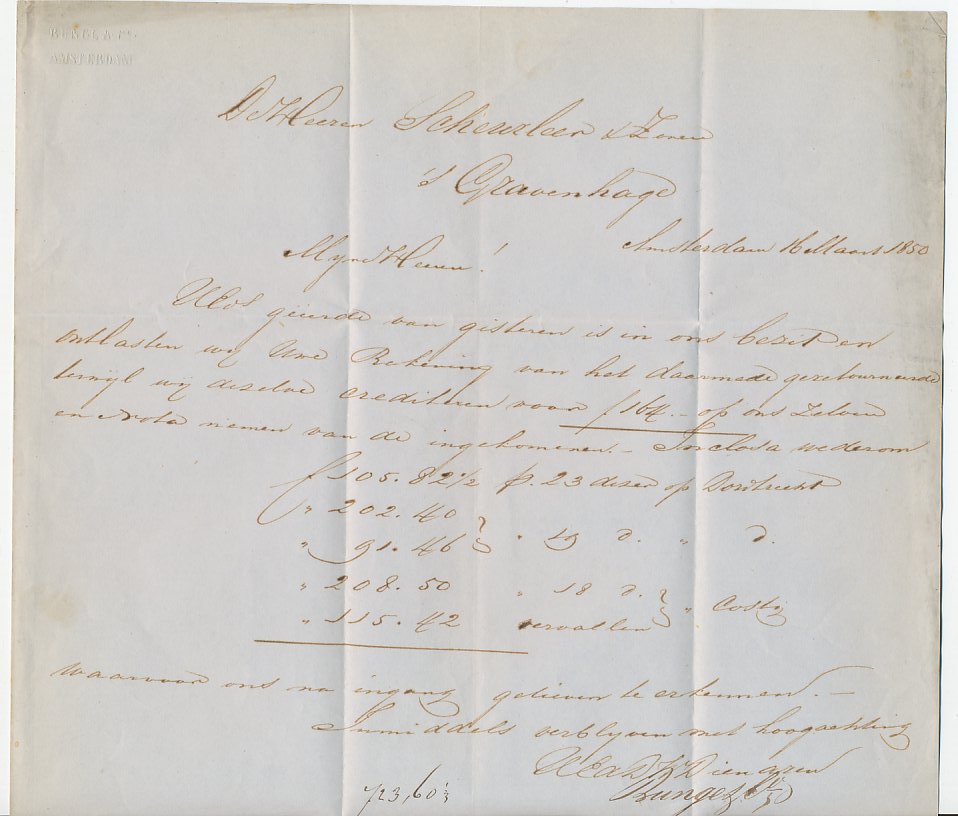 BUNGE & Co.
AMSTERDAM
De Heeren Scheurleer & Zonen
's Gravenhage
Amsterdam 16 Maart 1850
Myne Heeren!
UEds geeerde van gisteren is in ons bezit en
ontlasten wij Uwe Rekening van het daarmede geretourneerde
terwijl wij dezelve crediteren voor f 164.- op ons Zelven
en Nota nemen van de ingekomenen.- Inclosa wederom
f 105.82½ p. 23 dezer op Dordrecht
" 202.40
" 91.46 " 19 d. " d.
" 208.50 " 18 d.
" 115.42 vervallen " Costij
waarvoor ons na ingang gelieven te erkennen.-
Inmiddels verblyven met hoogachting
UEd DW Dienaren
Bunge & Co
723,60½